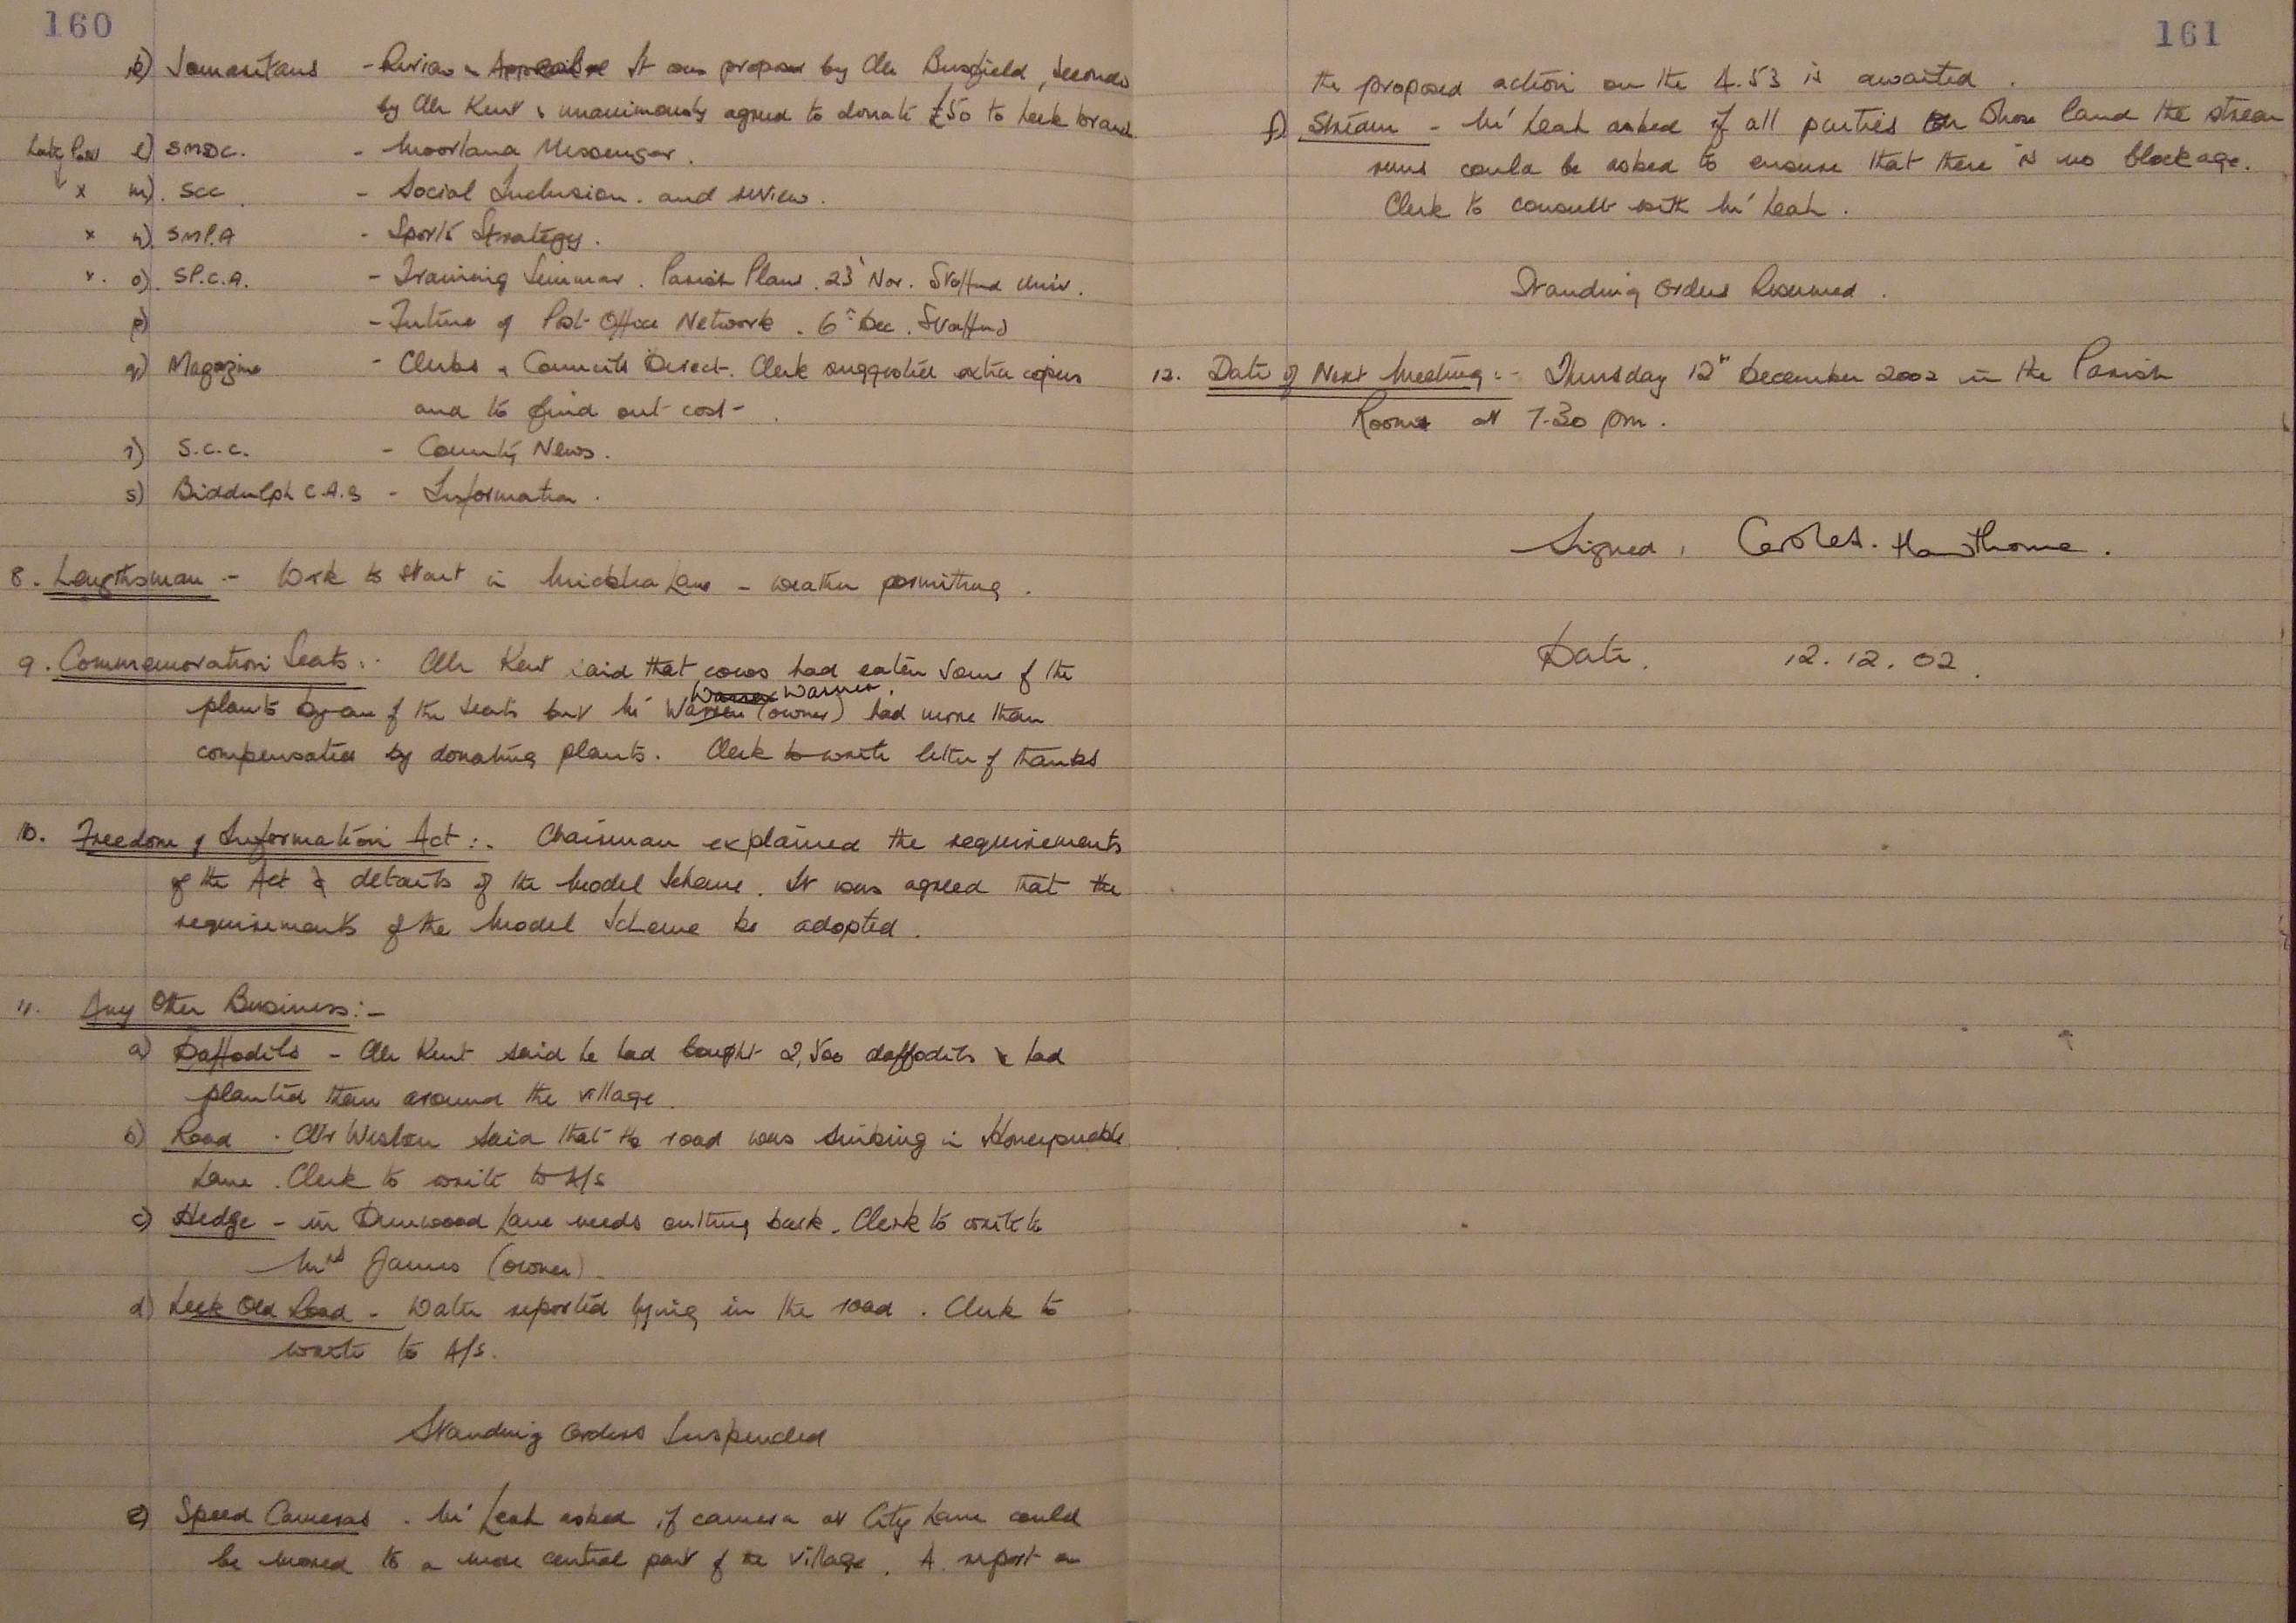 160
k) Samaritans - Review & Appeal It was propose by Cllr Busfield, seconde
by Cllr Kent & unanimously agreed to donate £50 to Leek branch.
l) SMDC. - Moorland Messenger.
x m). SCC. - Social Inclusion. and review.
x n). SMPA - Sports Strategy.
x. o). SP.C.A. - Training Seminar. Parish Plans. 23rd Nov. Stafford Univ.
p) - Future of Post-Office Network. 6th Dec. Stafford
q) Magazine - Clerks & Councils Direct. Clerk suggested extra copies
and to find out cost-.
r) S.C.C. - County News.
s) Biddulph C.A.B - Information.
8. Lengthsman :- Work to start in Lane - weather permitting.
9. Commemoration Seats:- Cllr Kent said that cows had eaten some of the
Warner.
plants by one of the seats but Mr (owner) had more than
compensated by donating plants. Clerk to write letter of thanks
10. Freedom of Information Act:- Chairman explained the requirements
of the Act & details of the Model Scheme. It was agreed that the
requirements of the Model Scheme be adopted.
11. Any Other Business:-
a) Daffodils - Cllr Kent said he had bought 2,500 daffodils & had
planted them around the village.
b) Road - Cllr Weston said that the road was sinking in Honeysuckle
Lane. Clerk to write to H/S
c) Hedge - in Dunwood Lane needs cutting back. Clerk to write to
Mrs James (owner).
d) Leek Old Road - Water reported lying in the road. Clerk to
write to H/S.
Standing Orders Suspended
e) Speed Cameras. Mr Leah asked if camera at City Lane could
be moved to a more central part of the village. A report on
161
the proposed action on the A.53 is awaited.
f) Stream - Mr Leah asked if all parties on whose land the stream
runs could be asked to ensure that there is no blockage.
Clerk to consult with Mr Leah.
Standing Orders Resumed.
12. Date of Next Meeting:- Thursday 12th December 2002 in the Parish
Rooms at 7-30 pm.
Signed, Hawthorne.
Date. 12.12.02.